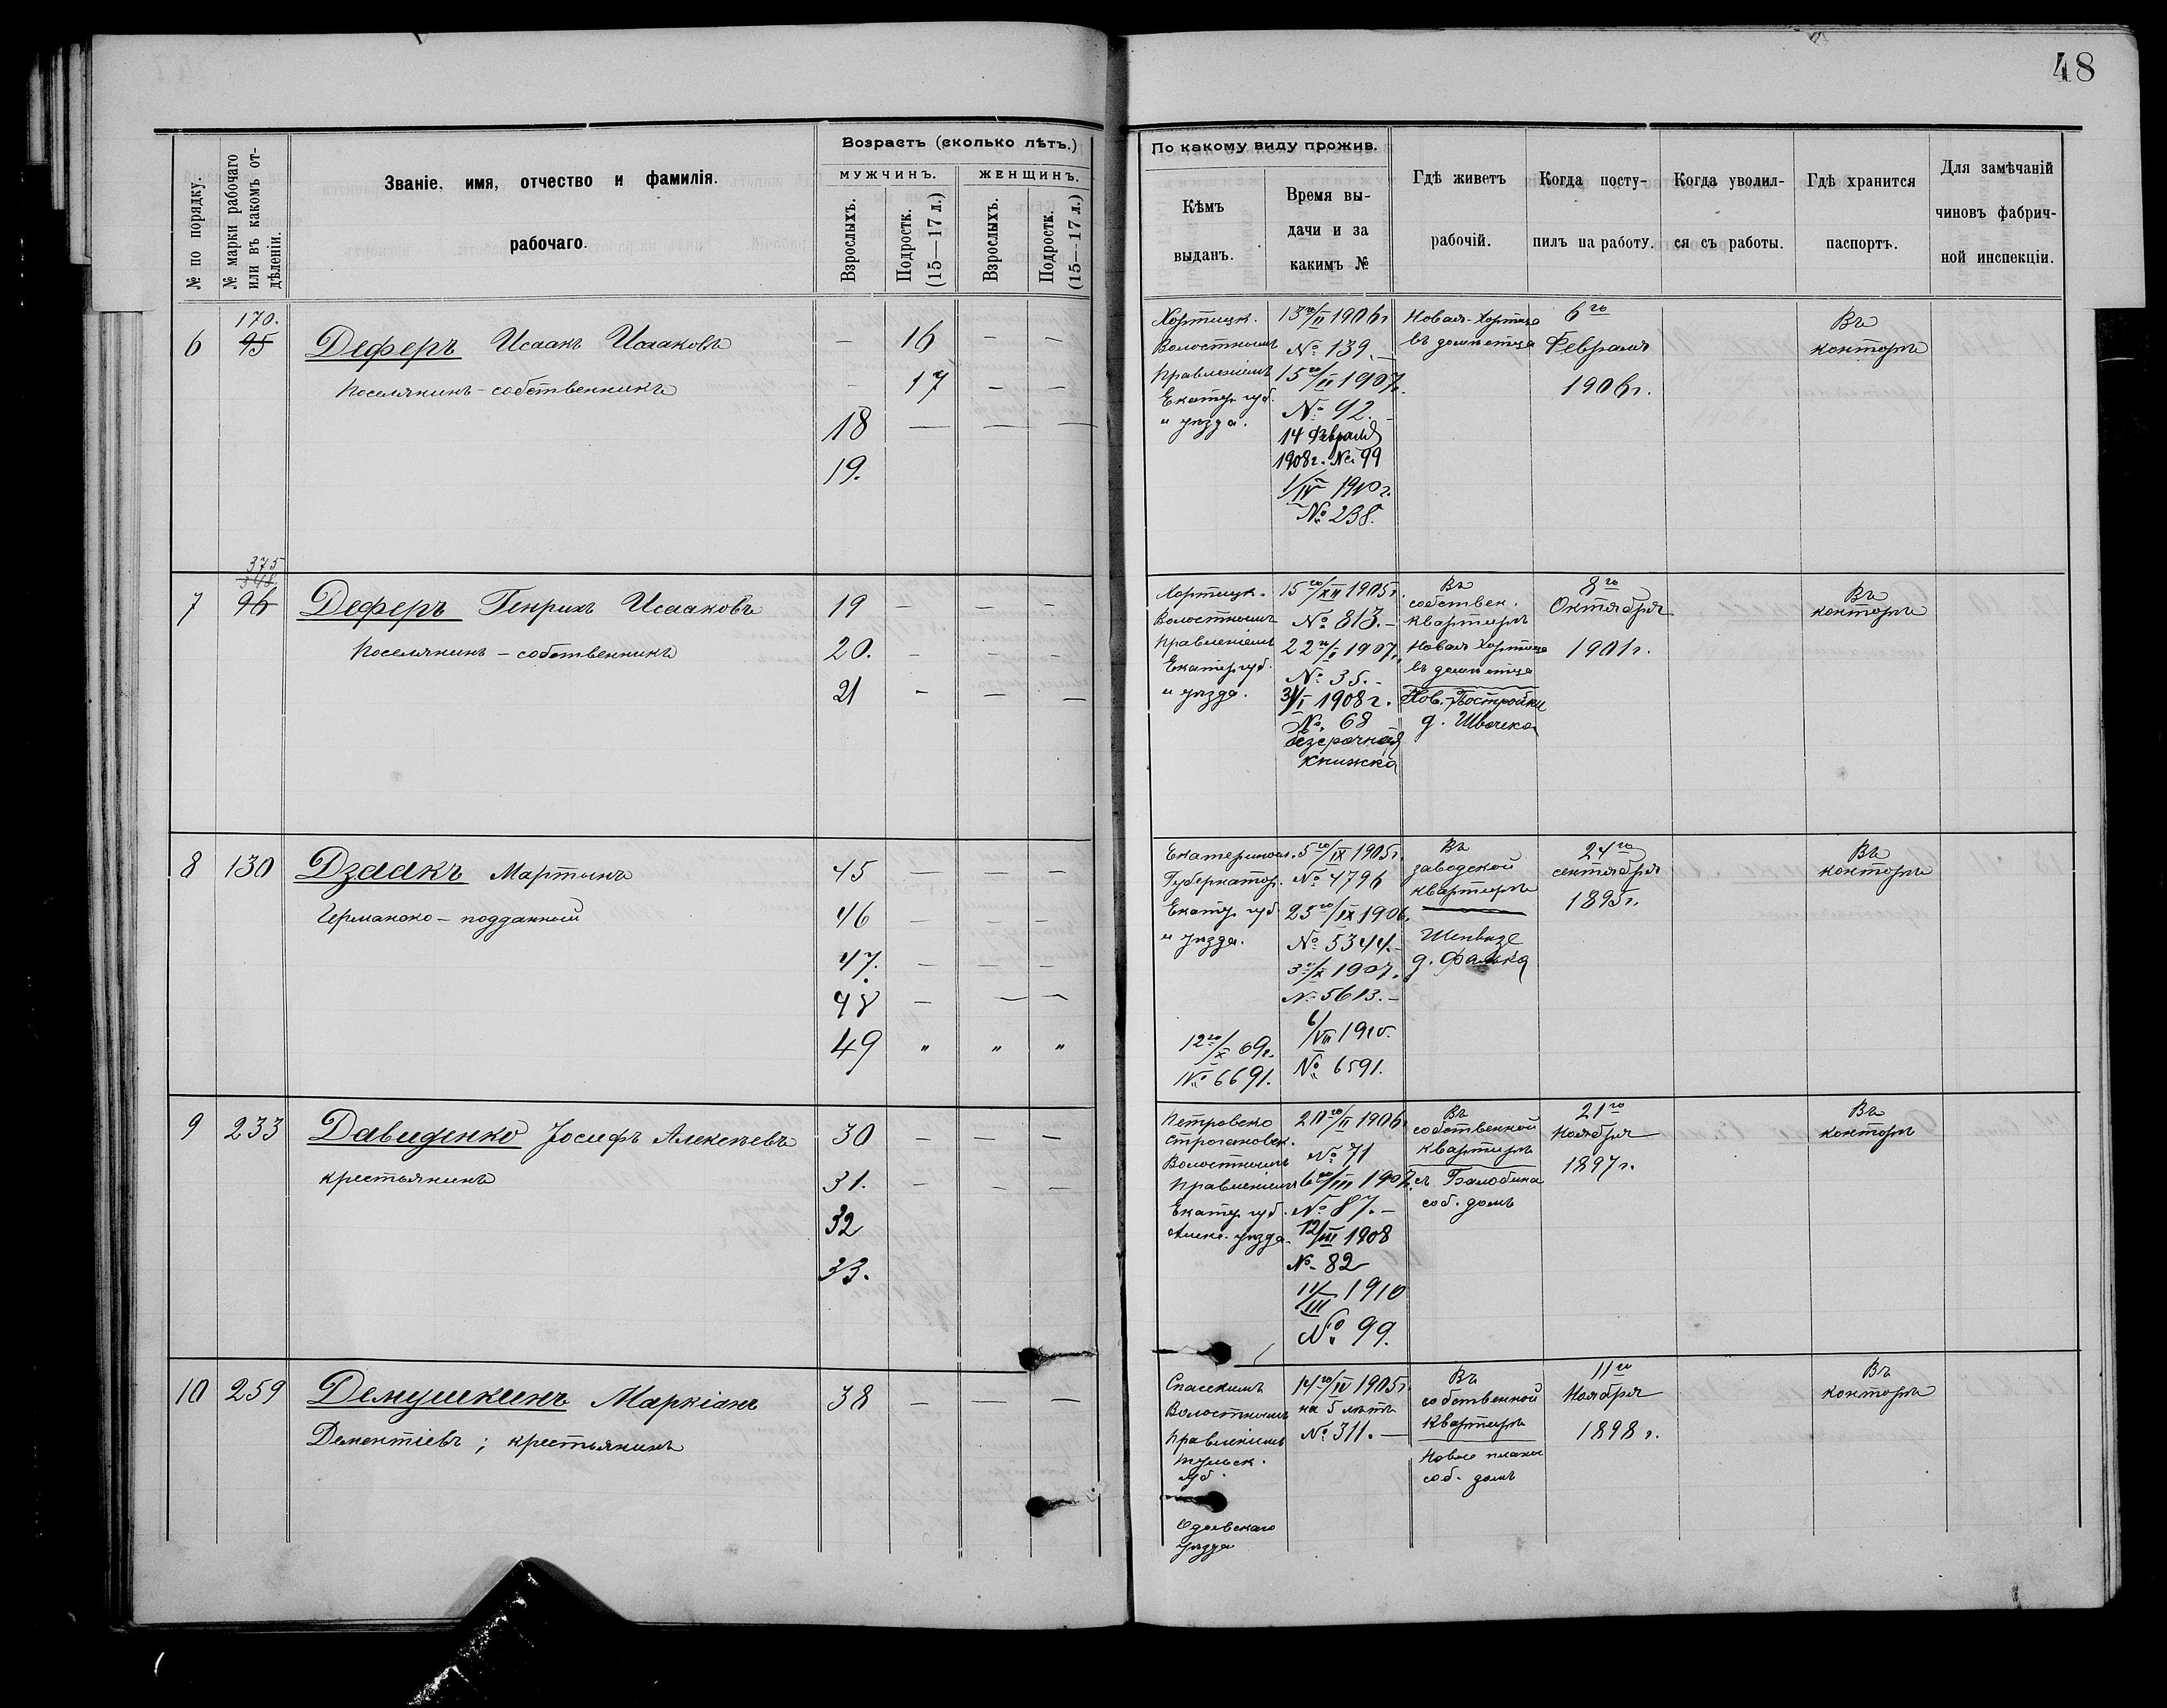 48
№ по порядку.
№ марки рабочаго или въ какомъ от-дѣленіи.
Званіе, имя, отчество и фамилія.
рабочаго.
Возрастъ (сколько лѣтъ.)
МУЖЧИНЪ.
ЖЕНЩИНЪ.
Взрослыхъ.
Подростк. (15—17 л.)
Взрослыхъ.
Подростк. (15—17 л.)
По какому виду прожив.
Кѣмъ
выданъ.
Время вы-
дачи и за
какимъ №
Гдѣ живетъ
рабочій.
Когда посту-
пилъ на работу.
Когда уволил-
ся съ работы.
Гдѣ хранится
паспортъ.
Для замѣчаній
чиновъ фабрич-
ной инспекціи.
170.
6 95 Деферъ Исаакъ Исааковъ — 16 — —
Поселянинъ-собственникъ — 17 — —
18 — — —
19.
Хортицк.
Волостнымъ
Правленіемъ
Екатер. губ.
и уѣзда.
13го/II 1906г
№ 139.—
15го/II 1907г.
№ 92.—
14 Февраля
1908г. № 99
1/IV 1910г.
№ 238.
Новая-Хортица
въ домѣ отца
6го
Февраля
1906г.
Въ
конторѣ
375
398
7 96 Деферъ Генрихъ Исааковъ 19 — — —
Поселянинъ-собственникъ 20. — — —
21 — — —
Хортицк.
Волостнымъ
Правленіемъ
Екатер. губ.
и уѣзда.
15го/XII 1905г.
№ 813.—
22го/I 1907г.
№ 35.—
31/I 1908г.
№ 68
безсрочная
книжка
Въ
собствен.
квартирѣ
Новая Хортица
въ домѣ отца
Нов.-Постройки
д. Швачека
8го
Октября
1901г.
Въ
конторѣ
8 130 Дзаакъ Мартынъ 45 — — —
Германско-подданный 46 — — —
47. — — —
48 — — —
49 " " "
Екатеринос.
Губернатор.
Екатер. губ.
и уѣзда.
12го/X 09г.
№ 6691.
5го/IX 1905г.
№ 4796
25го/IX 1906.
№ 5344.—
3го/X 1907.
№ 5613.—
6/VII 1910.
№ 6591.
Въ
заводской
квартирѣ
Шенвизе
д. Фалька
24го
сентября
1895г.
Въ
конторѣ
9 233 Давиденко Іосифъ Алексѣевъ 30 — — —
крестьянинъ 31. — — —
32
33.
Петровско
строгановск.
Волостнымъ
Правленіемъ
Екатер. губ.
Алекс. уѣзда.
20го/II 1906.
№ 71
6го/III 1907.
№ 87.—
12/III 1908
№ 82
11/III 1910
№ 99.
Въ
собственной
квартирѣ
соб. домъ
21го
Ноября
1897г.
Въ
конторѣ
10 259 Демушкинъ Маркіанъ 38 — — —
Дементіевъ; крестьянинъ
Спасскимъ
Волостнымъ
Правленіемъ
Тульск.
губ.
Одоевскаго
уѣзда
14го/IV 1905г.
на 5 лѣтъ
№ 311.—
Въ
собственной
квартирѣ
соб. домъ
11го
Ноября
1898г.
Въ
конторѣ